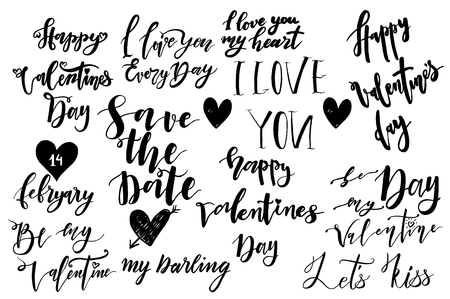 Happy
Valentines
Day
I love you
Every Day
I love you
my heart
I LOVE
YOU
Happy
Valentine's
day
Save
the
Date
14
february
happy
Valentines
Day
be
my
Day
Valentine
Be my
Valentine
my Darling
Let's kiss